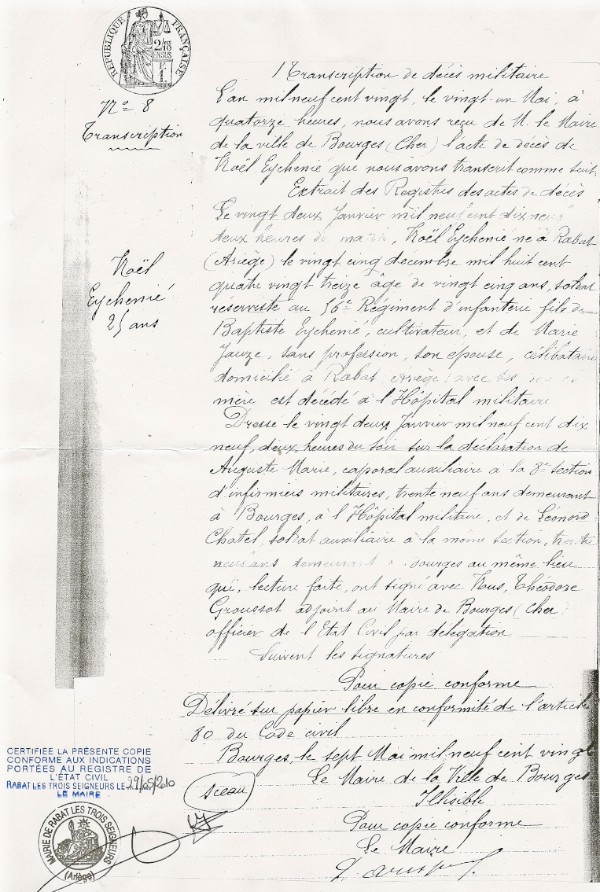 RÉPUBLIQUE FRANÇAISE
Nº 8
Transcription
Transcription de décès militaire
L'an mil neuf cent vingt, le vingt un Mai, à
quatorze heures, nous avons reçu de M. le Maire
de la ville de Bourges (Cher) l'acte de décès de
Noël Eychenié que nous avons transcrit comme suit
Extrait des Registres des actes de décès
Le vingt deux Janvier mil neuf cent dix neuf
deux heures du matin, Noël Eychenié né à Rabat
(Ariège) le vingt cinq decembre mil huit cent
quatre vingt treize âgé de vingt cinq ans, soldat
réserviste au 56e Régiment d'infanterie fils de
Baptiste Eychenié, cultivateur, et de Marie
Jauze, sans profession, son épouse, célibataire
domicilié à Rabat Ariège avec
mère est décédé à l'Hôpital militaire
Noël
Eychenié
25 ans
Dressé le vingt deux Janvier mil neuf cent dix
neuf, deux heures du soir sur la déclaration de
Auguste Marie, caporal auxiliaire à la 8e section
d'infirmiers militaires, trente neuf ans demeurant
à Bourges, à l'Hôpital militaire, et de Léonord
Chatel, soldat auxiliaire à la même section, trente
neuf ans demeurant à Bourges au même lieu
qui, lecture faite, ont signé avec Nous, Théodore
Groussot adjoint au Maire de Bourges (Cher)
officier de l'Etat Civil par délégation
Suivent les signatures
Pour copie conforme
Délivré sur papier libre en conformité de l'article
80 du Code civil
Bourges, le sept Mai mil neuf cent vingt
Le Maire de la Ville de Bourges
Sceau
Illisible
Pour copie conforme
Le Maire
CERTIFIÉE LA PRÉSENTE COPIE
CONFORME AUX INDICATIONS
PORTÉES AU REGISTRE DE
L'ÉTAT CIVIL
RABAT LES TROIS SEIGNEURS LE
LE MAIRE
MAIRIE DE RABAT LES TROIS SEIGNEURS
(Ariège)